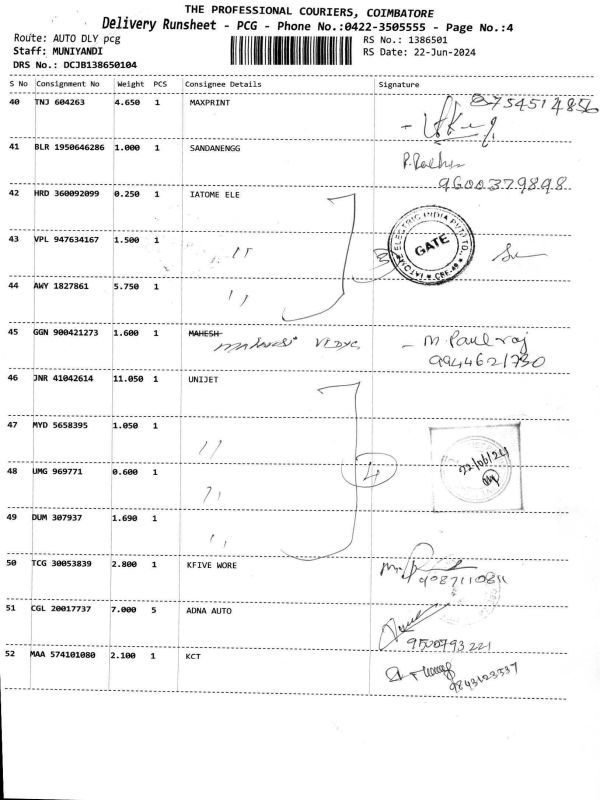 THE PROFESSIONAL COURIERS, COIMBATORE
Delivery Runsheet - PCG - Phone No.:0422-3505555 - Page No.:4
Route: AUTO DLY pcg
RS No.: 1386501
Staff: MUNIYANDI
RS Date: 22-Jun-2024
DRS No.: DCJB138650104
S No Consignment No Weight PCS Consignee Details Signature
40 TNJ 604263 4.650 1 MAXPRINT
8754514856
41 BLR 1950646286 1.000 1 SANDANENGG
9600379898
42 HRD 360092099 0.250 1 IATOME ELE
43 VPL 947634167 1.500 1 ,,
3
ELECTRIC INDIA PVT LTD.,
GATE
44 AWY 1827861 5.750 1 ,,
45 GGN 900421273 1.600 1 MAHESH
- M. Paulraj
9944621730
46 JNR 41042614 11.050 1 UNIJET
47 MYD 5658395 1.050 1 ,,
4
22/06/24
48 UMG 969771 0.600 1 ,,
49 DUM 307937 1.690 1 ,,
50 TCG 30053839 2.800 1 KFIVE WORE
9087110811
51 CGL 20017737 7.000 5 ADNA AUTO
9500793221
52 MAA 574101080 2.100 1 KCT
9843123537